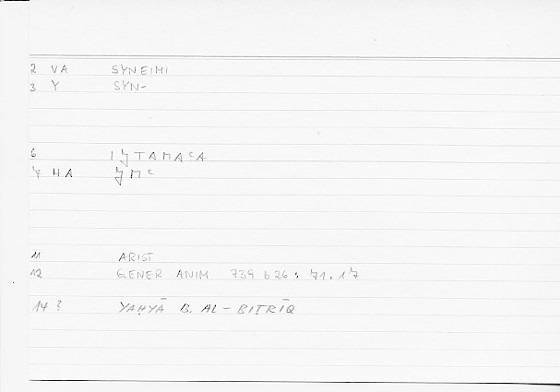 2 VA SYNEIMI
3 Y SYN-
6 IǦTAMAᶜA
4 HA ǦMᶜ
11 ARIST
12 GENER ANIM 739 b 26 : 71.17
14 ? YAḤYĀ B. AL-BIṬRĪQ